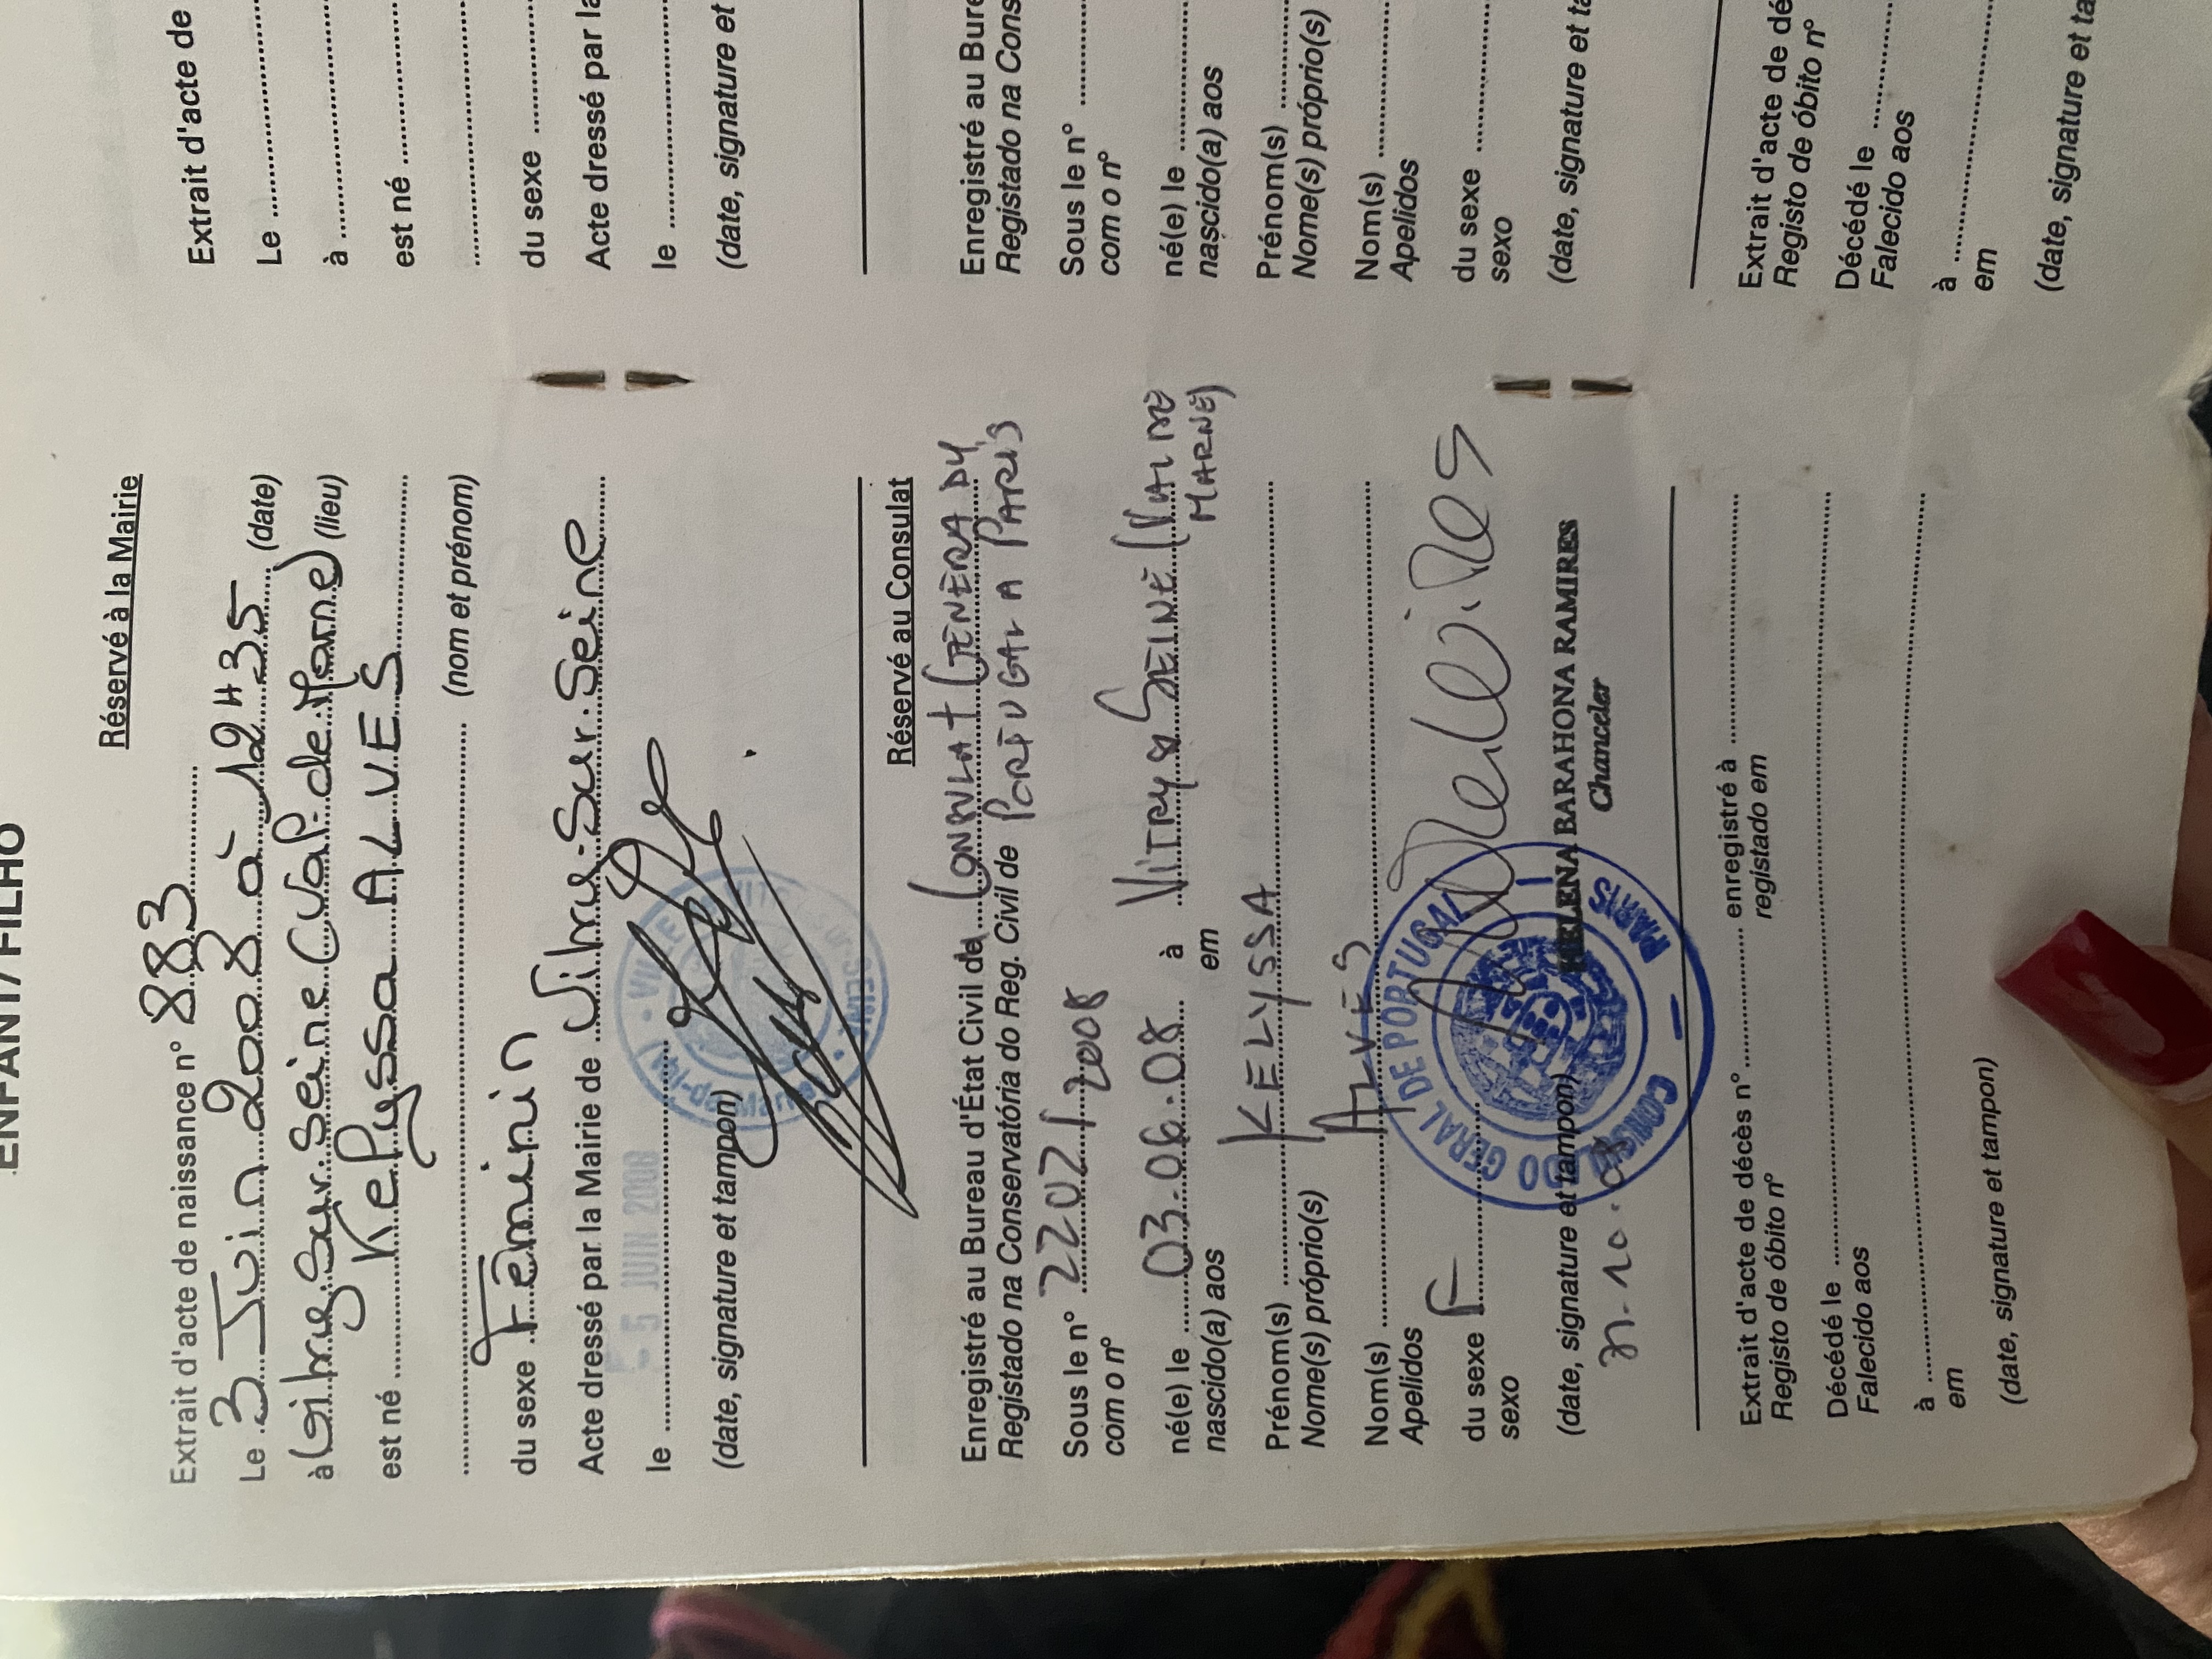 ENFANT / FILHO
Réservé à la Mairie
Extrait d'acte de naissance n° 883
Le 3 Juin 2008 à 12H35 (date)
à Vitry-Sur-Seine (Val-de-Marne) (lieu)
est né Kelyssa ALVES
(nom et prénom)
du sexe Féminin
Acte dressé par la Mairie de Vitry-Sur-Seine
le - 5 JUIN 2008
(date, signature et tampon)
Réservé au Consulat
Enregistré au Bureau d'État Civil de CONSULAT GÉNÉRAL DU
Registado na Conservatória do Reg. Civil de PORTUGAL A PARIS
Sous le n° 2202/2008
com o n°
né(e) le 03.06.08 à VITRY S/ SEINE (VAL DE
nascido(a) aos em MARNE)
Prénom(s) KELYSSA
Nome(s) próprio(s)
Nom(s) ALVES
Apelidos
du sexe F
sexo
CONSULADO GERAL DE PORTUGAL
PARIS
(date, signature et tampon) HELENA BARAHONA RAMIRES
Chanceler
Extrait d'acte de décès n° enregistré à
Registo de óbito n° registado em
Décédé le
Falecido aos
à
em
(date, signature et tampon)
Extrait d'acte de
Le
à
est né
du sexe
Acte dressé par la
le
(date, signature et
Enregistré au Bure
Registado na Cons
Sous le n°
com o n°
né(e) le
nascido(a) aos
Prénom(s)
Nome(s) próprio(s)
Nom(s)
Apelidos
du sexe
sexo
(date, signature et ta
Extrait d'acte de dé
Registo de óbito n°
Décédé le
Falecido aos
à
em
(date, signature et ta